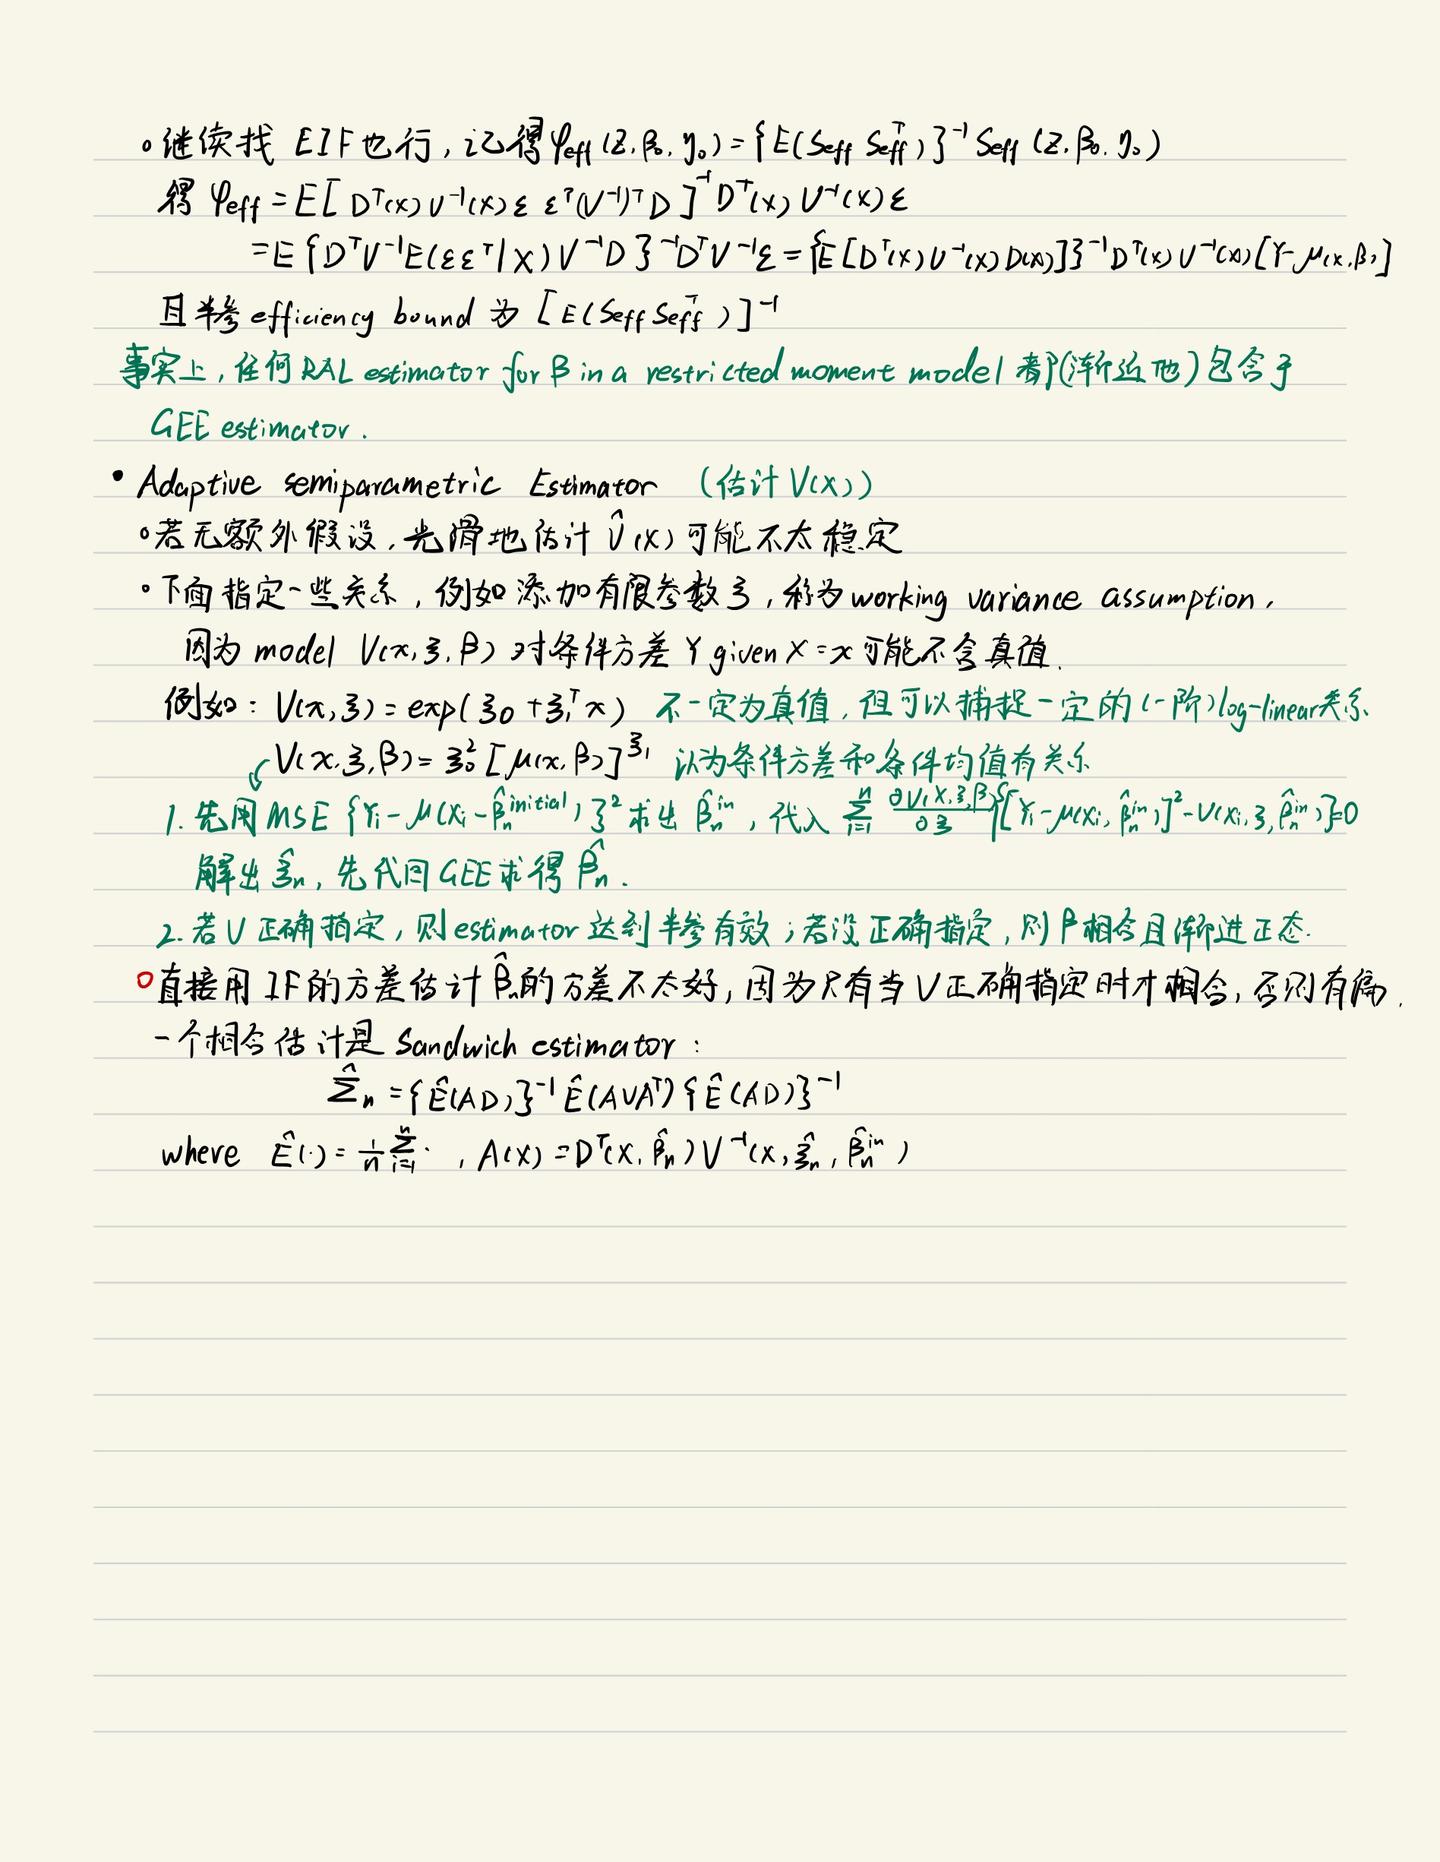 ◦继续找 EIF也行, 记得φeff(Z,β₀,η₀)={E(Seff Seffᵀ)}⁻¹ Seff(Z,β₀,η₀)
得 φeff = E[Dᵀ(x)V⁻¹(x)ε εᵀ(V⁻¹)ᵀD]⁻¹Dᵀ(x)V⁻¹(x)ε
=E{DᵀV⁻¹E(εεᵀ|X)V⁻¹D}⁻¹DᵀV⁻¹ε={E[Dᵀ(x)V⁻¹(x)D(x)]}⁻¹Dᵀ(x)V⁻¹(x)[Y-μ(x,β)]
且半参 efficiency bound 为 [E(Seff Seffᵀ)]⁻¹
事实上, 任何 RAL estimator for β in a restricted moment model 都(渐近地)包含于
GEE estimator.
• Adaptive semiparametric Estimator (估计V(X))
◦若无额外假设, 光滑地估计 V̂(x) 可能不太稳定
◦下面指定一些关系, 例如添加有限参数ξ, 称为 working variance assumption,
因为 model V(x,ξ,β) 对条件方差 Y given X=x 可能不含真值.
例如: V(x,ξ)=exp(ξ₀+ξ₁ᵀx) 不一定为真值, 但可以捕捉一定的(一阶)log-linear关系
V(x,ξ,β)=ξ₀²[μ(x,β)]^ξ₁ 认为条件方差和条件均值有关系
1. 先用 MSE {Yᵢ-μ(Xᵢ-β̂ₙ^initial)}² 求出 β̂ₙ^in, 代入 Σᵢ₌₁ⁿ ∂V(X,ξ,β)/∂ξ {[Yᵢ-μ(Xᵢ,β̂ₙ^in)]²-V(Xᵢ,ξ,β̂ₙ^in)}=0
解出 ξ̂ₙ, 先代回 GEE求得 β̂ₙ.
2. 若V正确指定, 则 estimator 达到半参有效; 若没正确指定, 则β相合且渐进正态.
◦直接用 IF的方差估计β̂ₙ的方差不太好, 因为只有当V正确指定时才相合, 否则有偏.
一个相合估计是 Sandwich estimator:
Σ̂ₙ={Ê(AD)}⁻¹Ê(AVAᵀ){Ê(AD)}⁻¹
where Ê(·)=1/n Σᵢ₌₁ⁿ ·, A(X)=Dᵀ(X,β̂ₙ)V⁻¹(X,ξ̂ₙ,β̂ₙ^in)